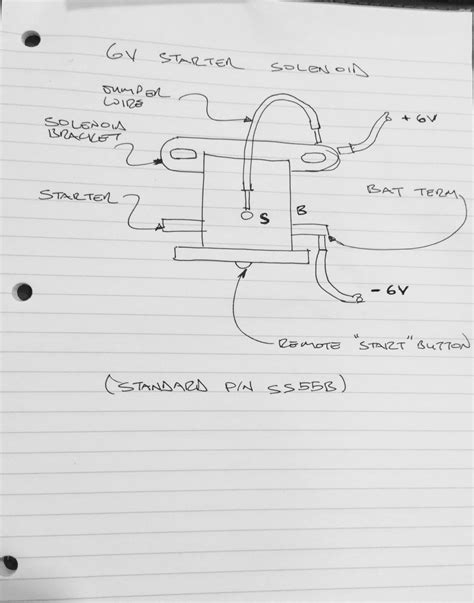 6V STARTER SOLENOID
JUMPER
WIRE
+6V
SOLENOID
BRACKET
BAT TERM.
STARTER
S
B
-6V
REMOTE "START" BUTTON
(STANDARD P/N SS55B)